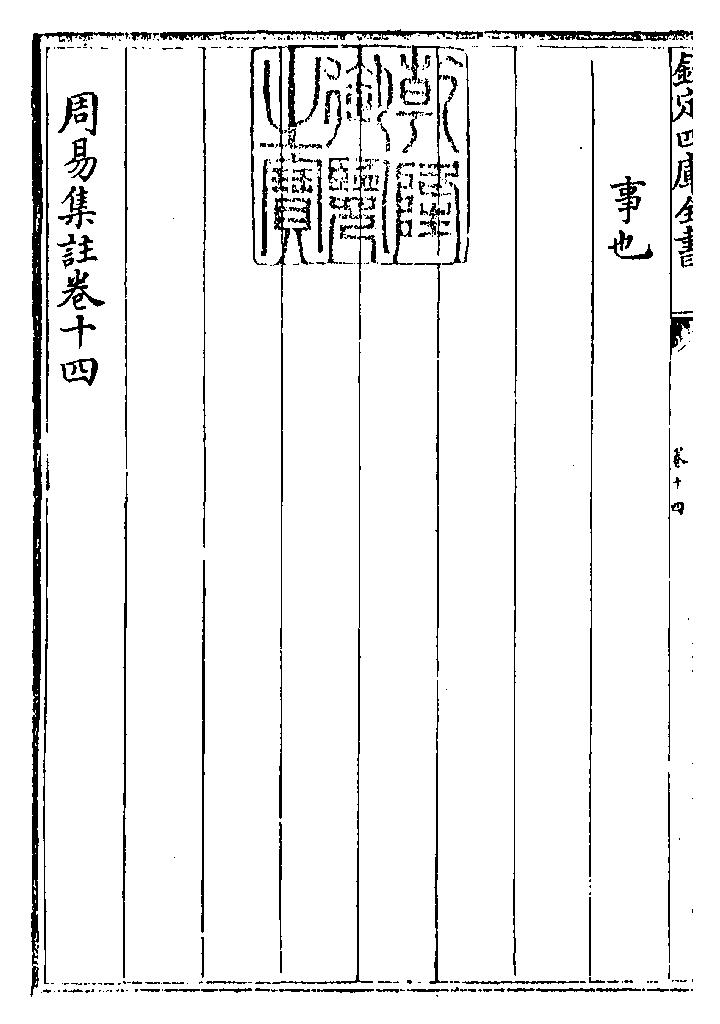 欽定四庫全書
卷十四
事也
乾隆御覽之寶
周易集註卷十四